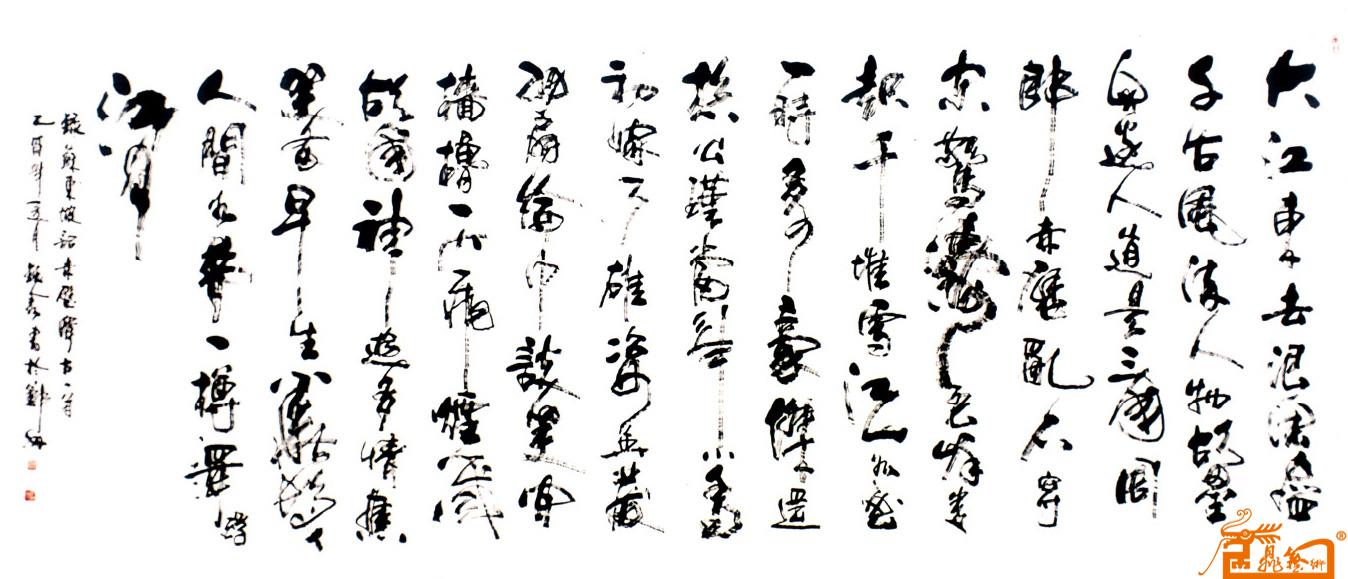 大江東去浪淘盡
千古風流人物故壘
西邊人道是三國周
郎赤壁亂石穿
空驚濤拍岸卷
起千堆雪江山如畫
一時多少豪傑遥
想公瑾當年小喬
初嫁了雄姿英發
羽扇綸巾談笑間
檣櫓灰飛煙滅
故國神遊多情應
笑我早生華髮
人間如夢一樽還酹
江月
錄蘇東坡詞赤壁懷古一首
乙酉年 月 書於鄭州